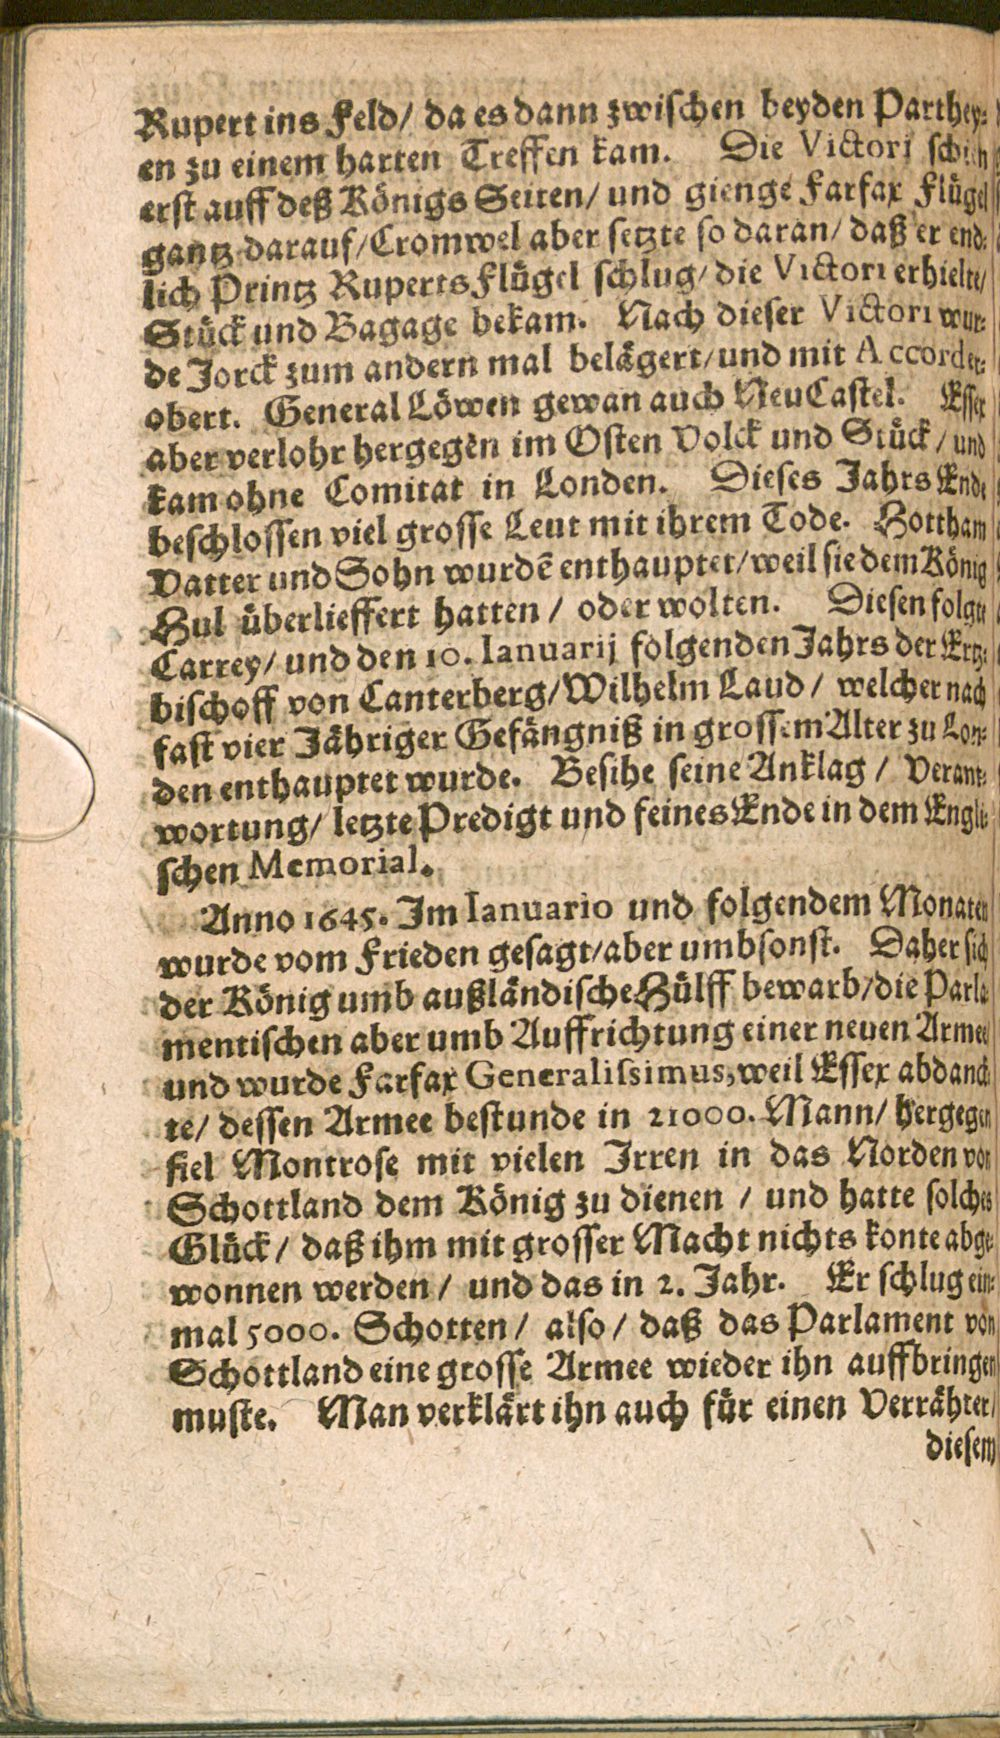 Rupert ins Feld/ da es dann zwischen beyden Parthey⸗
en zu einem harten Treffen kam. Die Victori schien
erst auff deß Königs Seiten/ und gienge Farfax Flügel
gantz darauf/ Cromwel aber setzte so daran/ daß er end⸗
lich Printz Ruperts Flügel schlug/ die Victori erhielte/
Stück und Bagage bekam. Nach dieser Victori wur⸗
de Jorck zum andern mal belägert/ und mit Accord er⸗
obert. General Löwen gewan auch NeuCastel. Essex
aber verlohr hergegen im Osten Volck und Stück/ und
kam ohne Comitat in Londen. Dieses Jahrs Ende
beschlossen viel grosse Leut mit ihrem Tode. Hottham
Vatter und Sohn wurdẽ enthauptet/ weil sie dem König
Hul überlieffert hatten / oder wolten. Diesen folgte
Carrey/ und den 10. Ianuarij folgenden Jahrs der Ertz⸗
bischoff von Canterberg/ Wilhelm Laud / welcher nach
fast vier Jähriger Gefängniß in grossem Alter zu Lon⸗
den enthauptet wurde. Besihe seine Anklag / Verant⸗
wortung/ letzte Predigt und feines Ende in dem Engli⸗
schen Memorial.
Anno 1645. Im Ianuario und folgendem Monaten
wurde vom Frieden gesagt/ aber umbsonst. Daher sich
der König umb außländische Hülff bewarb/ die Parla⸗
mentischen aber umb Auffrichtung einer neuen Armee
und wurde Farfax Generalissimus, weil Essex abdanck⸗
te/ dessen Armee bestunde in 21000. Mann/ hergegen
fiel Montrose mit vielen Irren in das Norden von
Schottland dem König zu dienen / und hatte solches
Glück/ daß ihm mit grosser Macht nichts konte abge⸗
wonnen werden / und das in 2. Jahr. Er schlug ein⸗
mal 5000. Schotten/ also/ daß das Parlament von
Schottland eine grosse Armee wieder ihn auffbringen
muste. Man verklärt ihn auch für einen Verrähter/
diesem